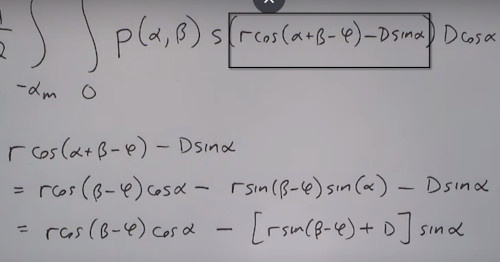 1/2 ∫ ∫ p(α, β) s (rcos(α+β-φ)-Dsinα) Dcosα
-αm 0
rcos(α+β-φ) - Dsinα
= rcos(β-φ)cosα - rsin(β-φ)sin(α) - Dsinα
= rcos(β-φ)cosα - [rsin(β-φ)+D] sinα